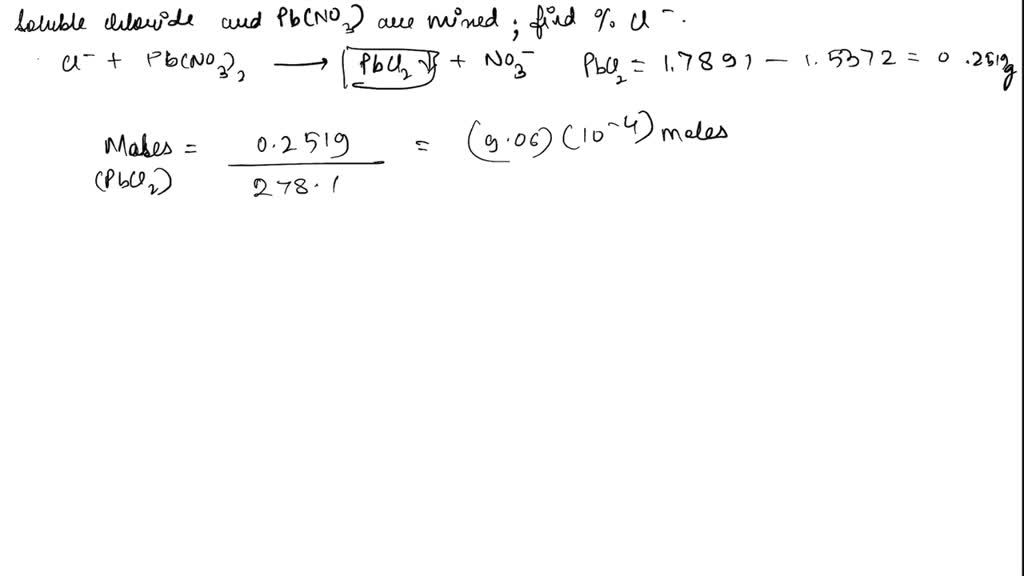 Soluble chloride and Pb(NO3) are mixed ; find % Cl-.
Cl- + Pb(NO3)2 ⟶ PbCl2 ↓ + NO3- PbCl2 = 1.7891 - 1.5372 = 0.2519g
Moles (PbCl2) = 0.2519 / 278.1 = (9.06) (10-4) moles